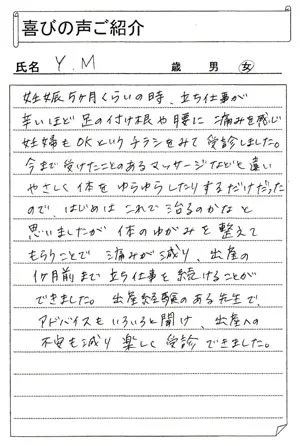 喜びの声ご紹介
氏名 Y.M 歳 男 女
妊娠5ヶ月くらいの時、立ち仕事が
辛いほど足の付け根や腰に痛みを感じ
妊婦もOKというチラシをみて受診しました。
今まで受けたことのあるマッサージなどと違い
やさしく体をゆらゆらしたりするだけだった
ので、はじめはこれで治るのかなと
思いましたが体のゆがみを整えて
もらうことで痛みが減り、出産の
1ヶ月前まで立ち仕事を続けることが
できました。出産経験のある先生で、
アドバイスもいろいろと聞け、出産への
不安も減り楽しく受診できました。